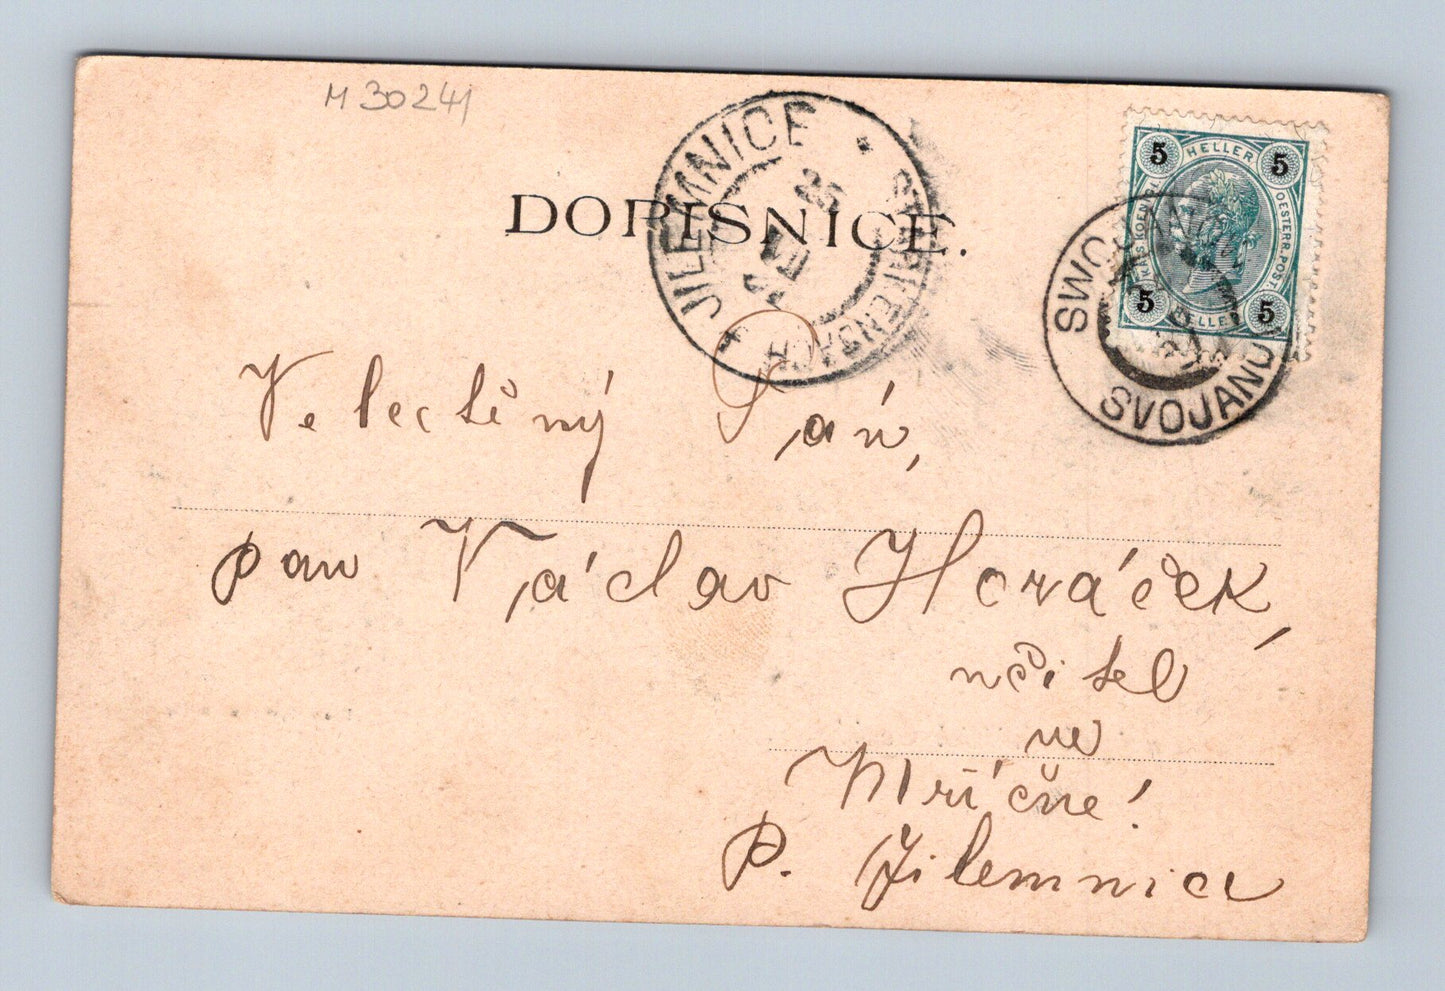 M 30241
DOPISNICE.
JILEMNICE
STARKENBACH
5 HELLER 5
KAIS. KOENIGL.
OESTERR. POST.
5 HELLER 5
SWOJANOW
SVOJANOV
Velectěný Pán,
pan Václav Horáček,
učitel
ve
Mříčné!
P. Jilemnice